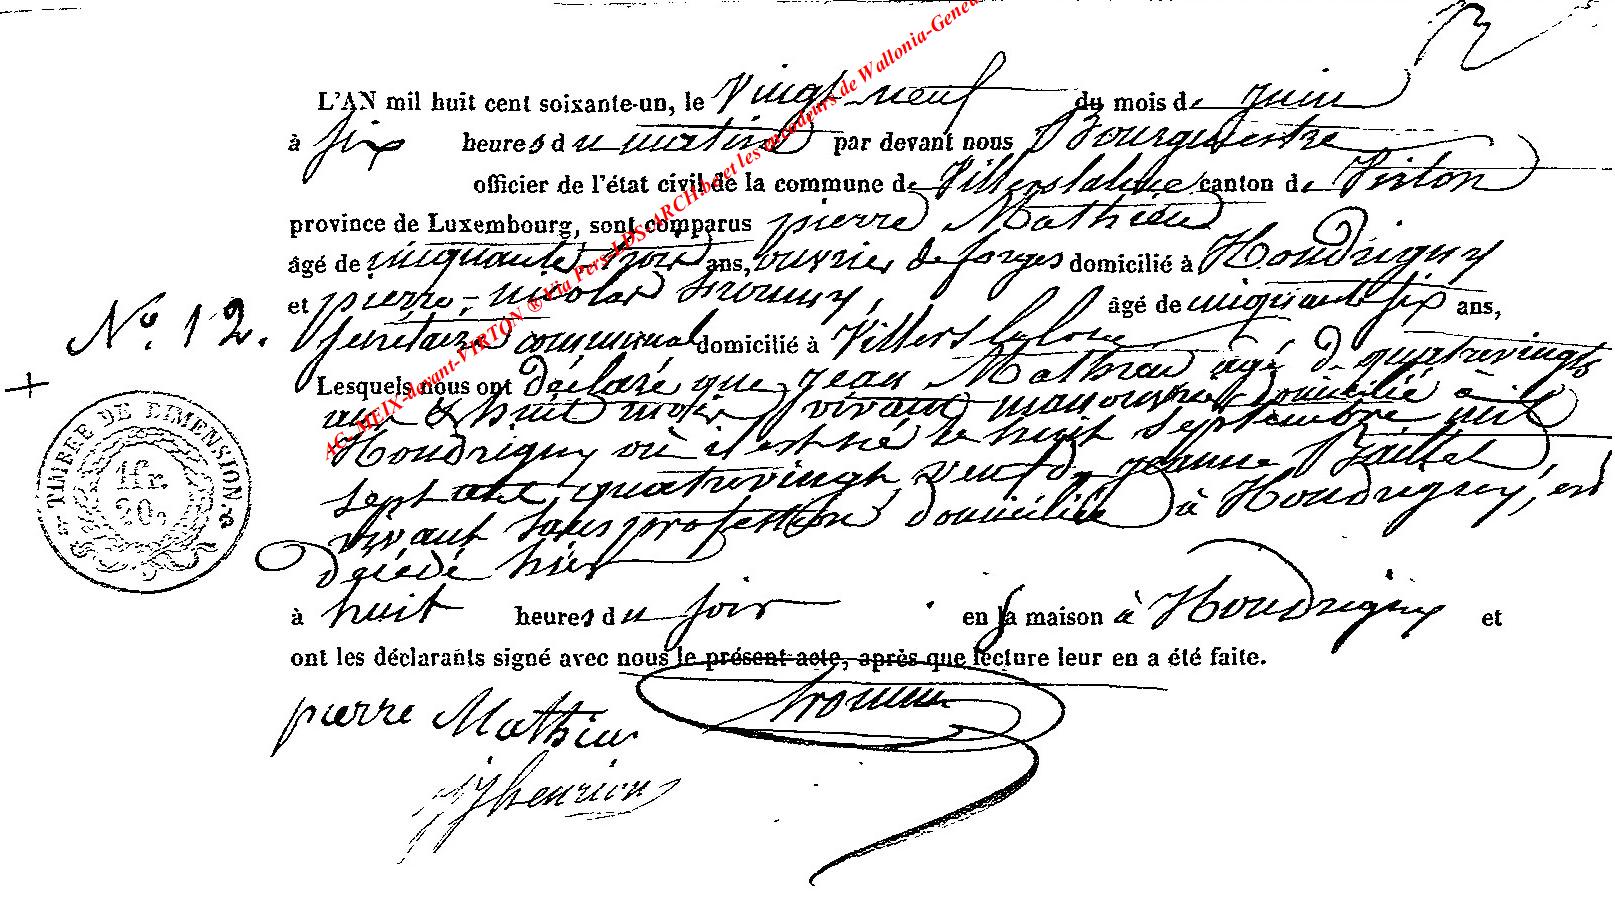 L'AN mil huit cent soixante-un, le Vingt neuf du mois de juin
à six heures du matin par devant nous Bourgmestre
officier de l'état civil de la commune de Villerslaloue canton de Virton
province de Luxembourg, sont comparus pierre Mathieu
âgé de cinquante trois ans, ouvrier de forges domicilié à Houdrigny
et pierre-nicolas âgé de cinquante six ans,
N.º 12.
secrétaire communal domicilié à Villerslaloue
Lesquels nous ont déclaré que jean Mathieu agé de quatrevingts
ans & huit mois vivant manouvrier domicilié à
Houdrigny où il est né le huit septembre mil
sept cent quatrevingt veuf de jeanne Baillet
vivant sans profession domiciliée à Houdrigny, est
décédé hier
à huit heures du soir en sa maison à Houdrigny et
ont les déclarants signé avec nous le présent acte, après que lecture leur en a été faite.
pierre Mathieu
henrion
TIMBRE DE DIMENSION
1fr.
20.
AC MEIX-devant-VIRTON ® Via Pers LDS-ARCH.be et les encodeurs de Wallonia-Gene